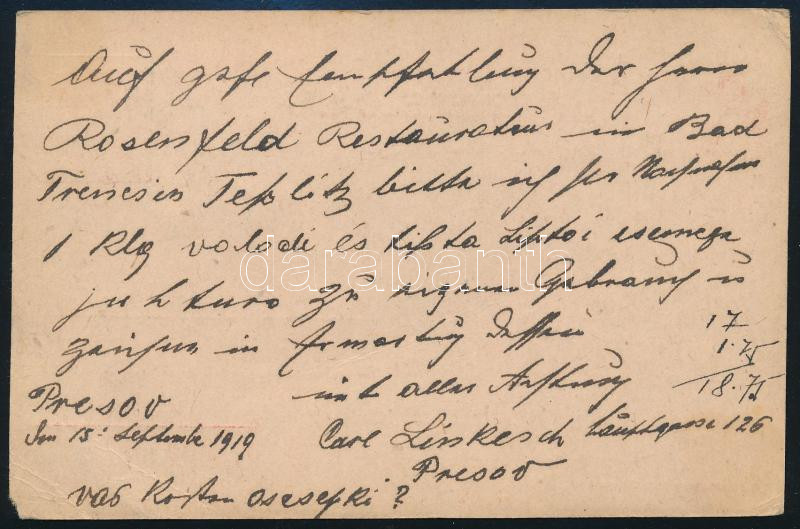 Auf gefe Empfehlung des Herrn
Rosenfeld Restaurateur in Bad
Trencsin Teplitz bitte ich per Nachnahme
1 Klg valodi és tiszta Liptoi csemege
juhturo zu eigenen Gebrauch u
zeichne in Erwartung dessen
mit aller Achtung
17
1.75
18.75
Presov
den 15: September 1919
Carl Linkesch Hauptgasse 126
Presov
vas kosten oscsepki?
darabanth